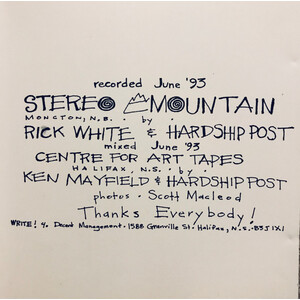 recorded June '93
STEREO MOUNTAIN
MONCTON, N.B. by
RICK WHITE & HARDSHIP POST
mixed June '93
CENTRE FOR ART TAPES
HALIFAX, N.S. by
KEN MAYFIELD & HARDSHIP POST
photos - Scott Macleod
Thanks Everybody!
WRITE! % Decent Management. 1588 Granville St. Halifax, N.S. B3J 1X1